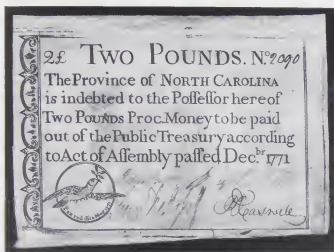 2£ TWO POUNDS. N.º 2090
The Province of NORTH CAROLINA
is indebted to the Poſſeſſor hereof
Two POUNDS Proc. Money to be paid
out of the Public Treasury according
to Act of Aſſembly paſſed Dec.br 1771